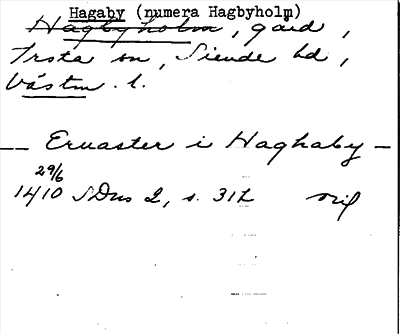 Hagaby (numera Hagbyholm)
Hagbyholm, gård,
Irsta sn, Siende hd,
Västm. l.
— Eruaster i Haghaby —
29/6
1410 SDns 2, s. 312 orig